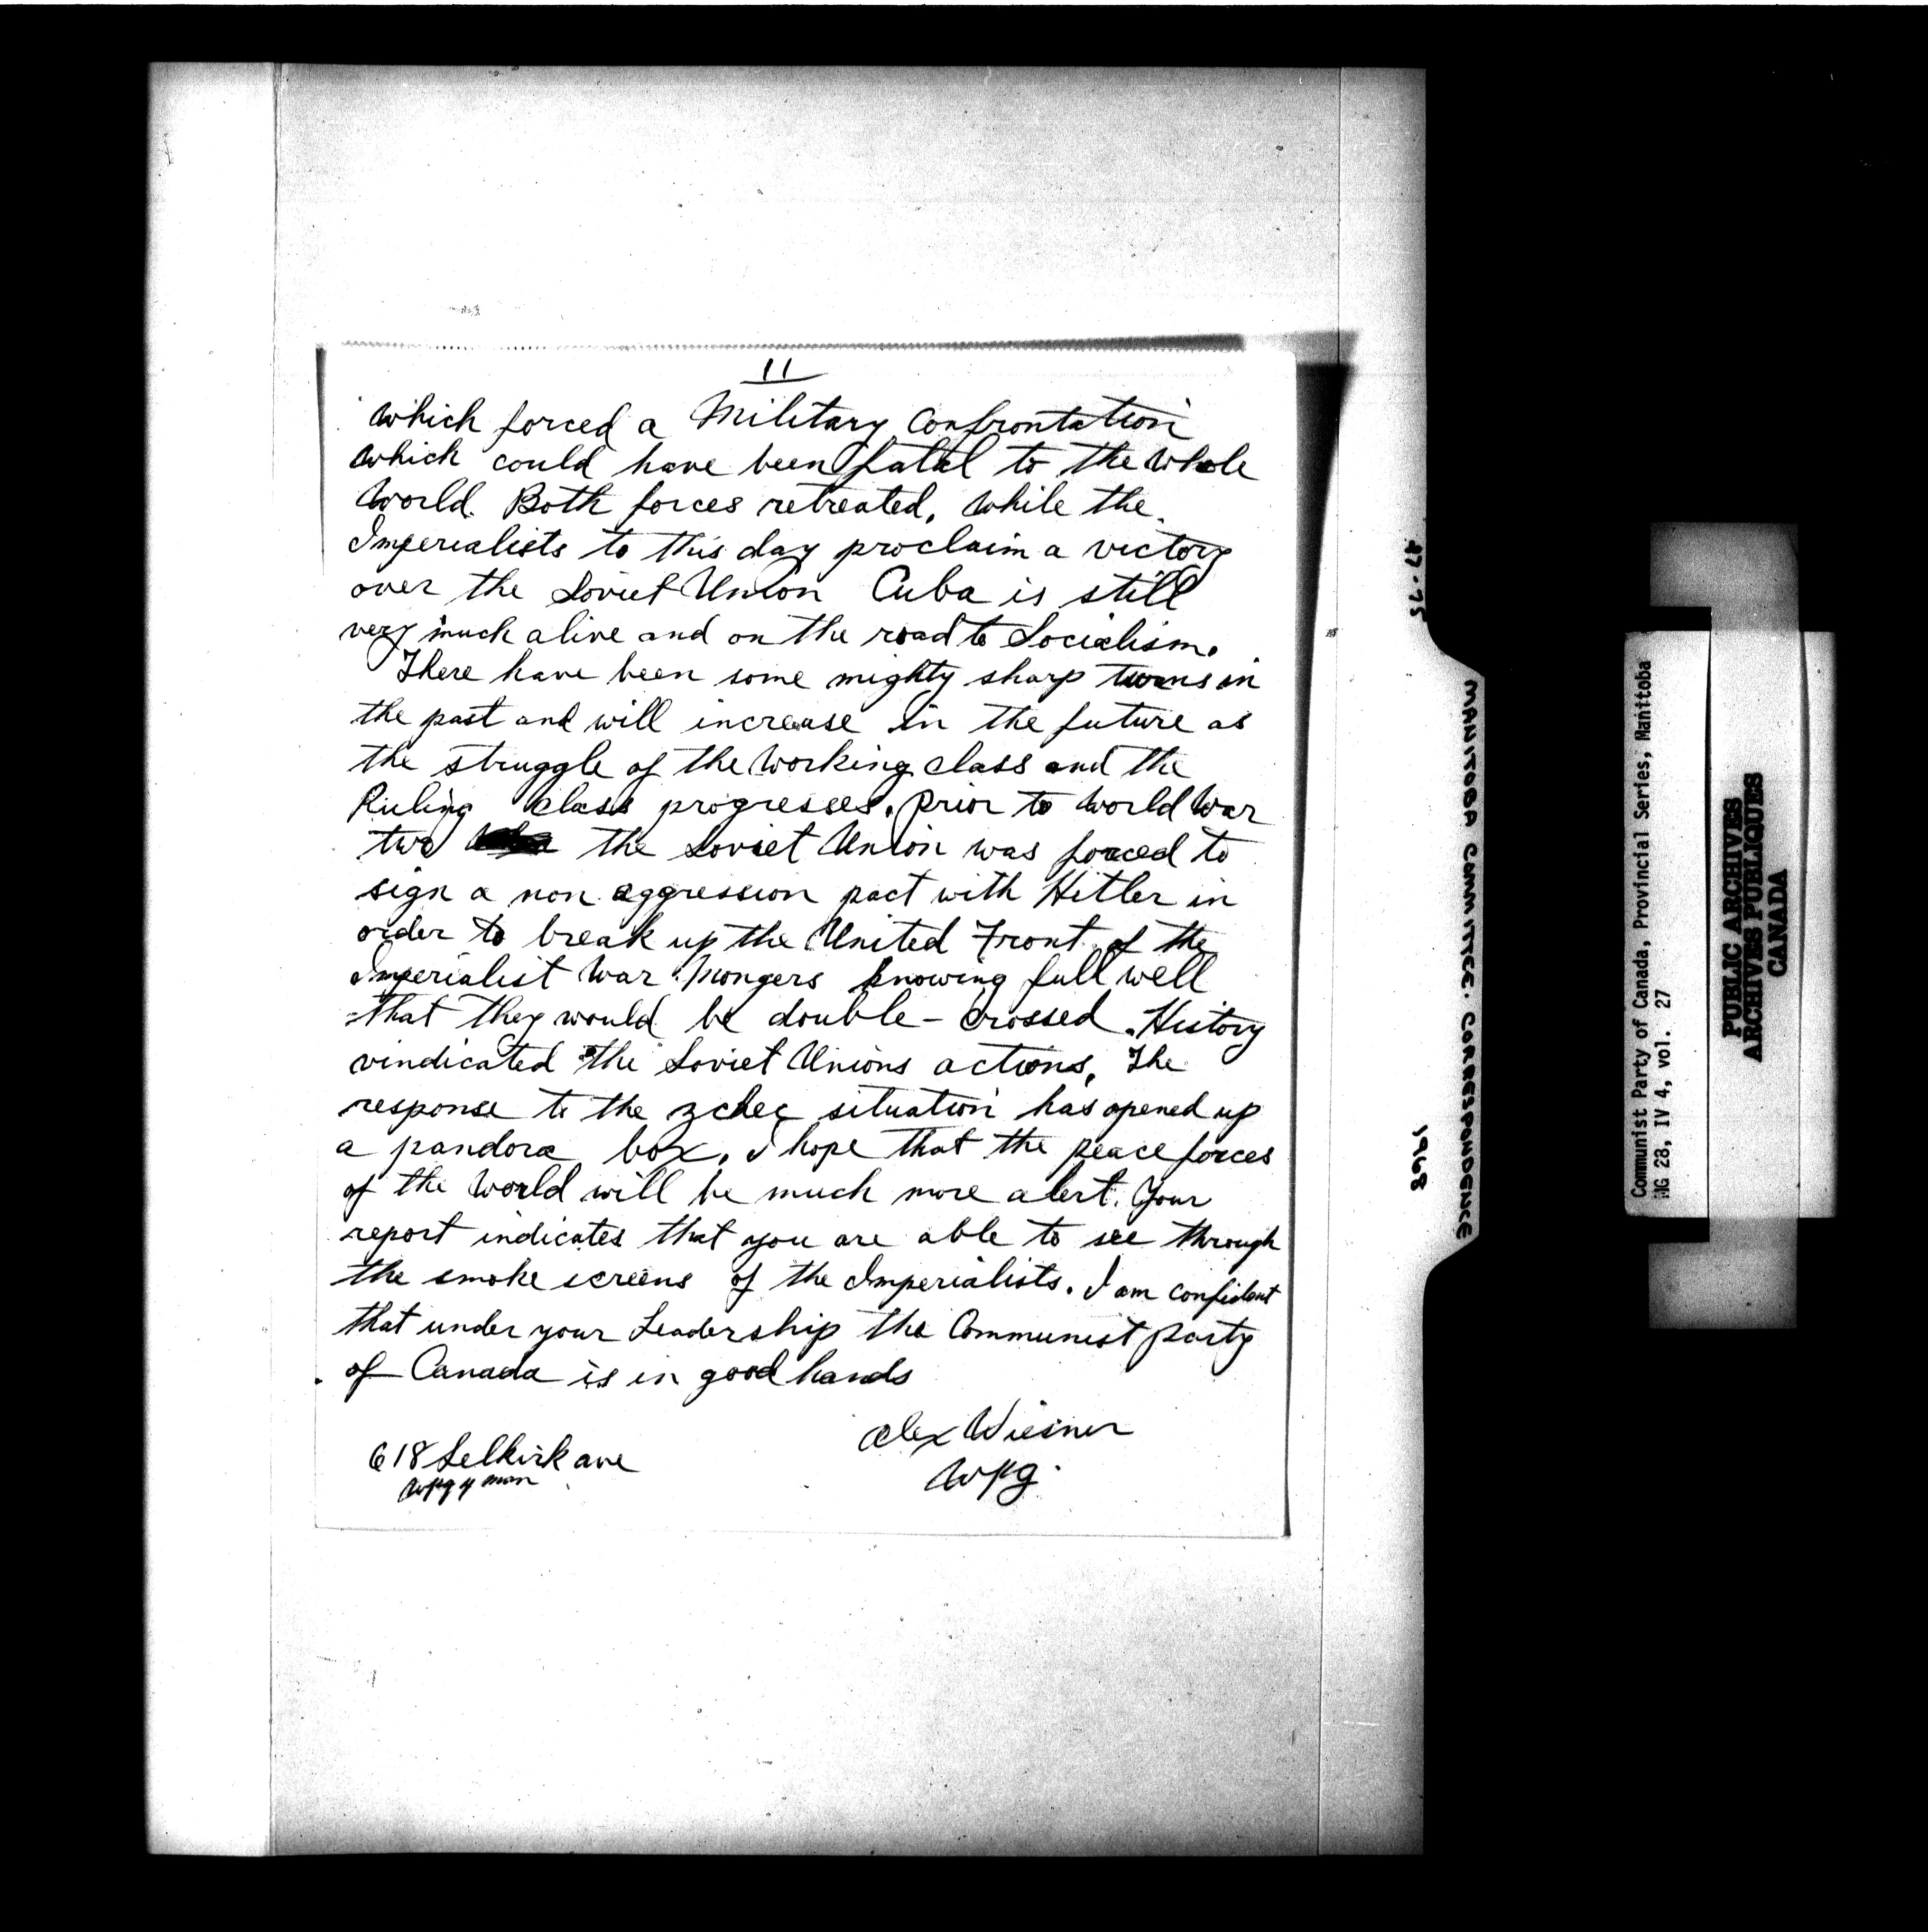 11
which forced a Military Confrontation
which could have been fatal to the whole
World. Both forces retreated, while the
Imperialists to this day proclaim a victory
over the Soviet Union Cuba is still
very much alive and on the road to Socialism.
There have been some mighty sharp turns in
the past and will increase in the future as
the struggle of the Working class and the
Ruling class progresses. Prior to World War
two the Soviet Union was forced to
sign a non aggression pact with Hitler in
order to break up the United Front of the
Imperialist War Mongers knowing full well
that they would be double-crossed. History
vindicated the Soviet Unions actions. The
response to the zchec situation has opened up
a pandora box. I hope that the peace forces
of the World will be much more alert. Your
report indicates that you are able to see through
the smoke screens of the Imperialists. I am confident
that under your Leadership the Communist party
of Canada is in good hands
Alex Wiesner
Wpg.
618 Selkirk ave
Wpg 4 man
47-75
MANITOBA COMMITTEE. CORRESPONDENCE
1968
Communist Party of Canada, Provincial Series, Manitoba
MG 28, IV 4, vol. 27
PUBLIC ARCHIVES
ARCHIVES PUBLIQUES
CANADA